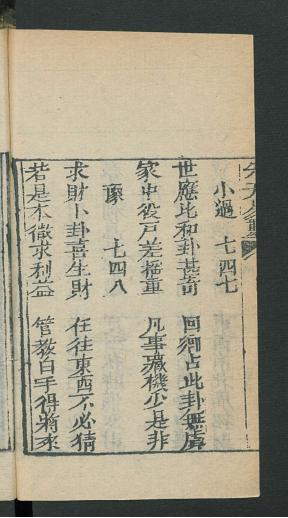 小過 七四七
世應比和卦甚奇 回鄉占此卦無虞
家中役戸差徭重 凡事藏機少是非
豫 七四八
求財卜卦喜生財 任往東西不必猜
若是本微求利益 管教白手得將來